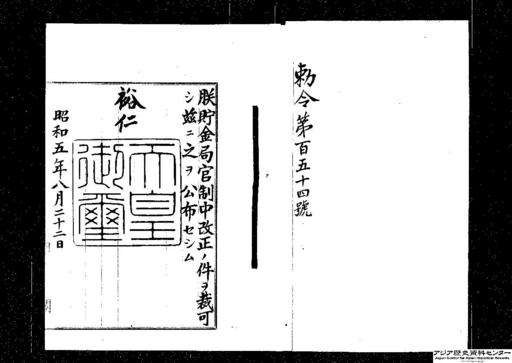 勅令第百五十四號
朕貯金局官制中改正ノ件ヲ裁可
シ茲ニ之ヲ公布セシム
裕仁
天皇
御璽
昭和五年八月二十二日
アジア歴史資料センター
Japan Center for Asian Historical Records